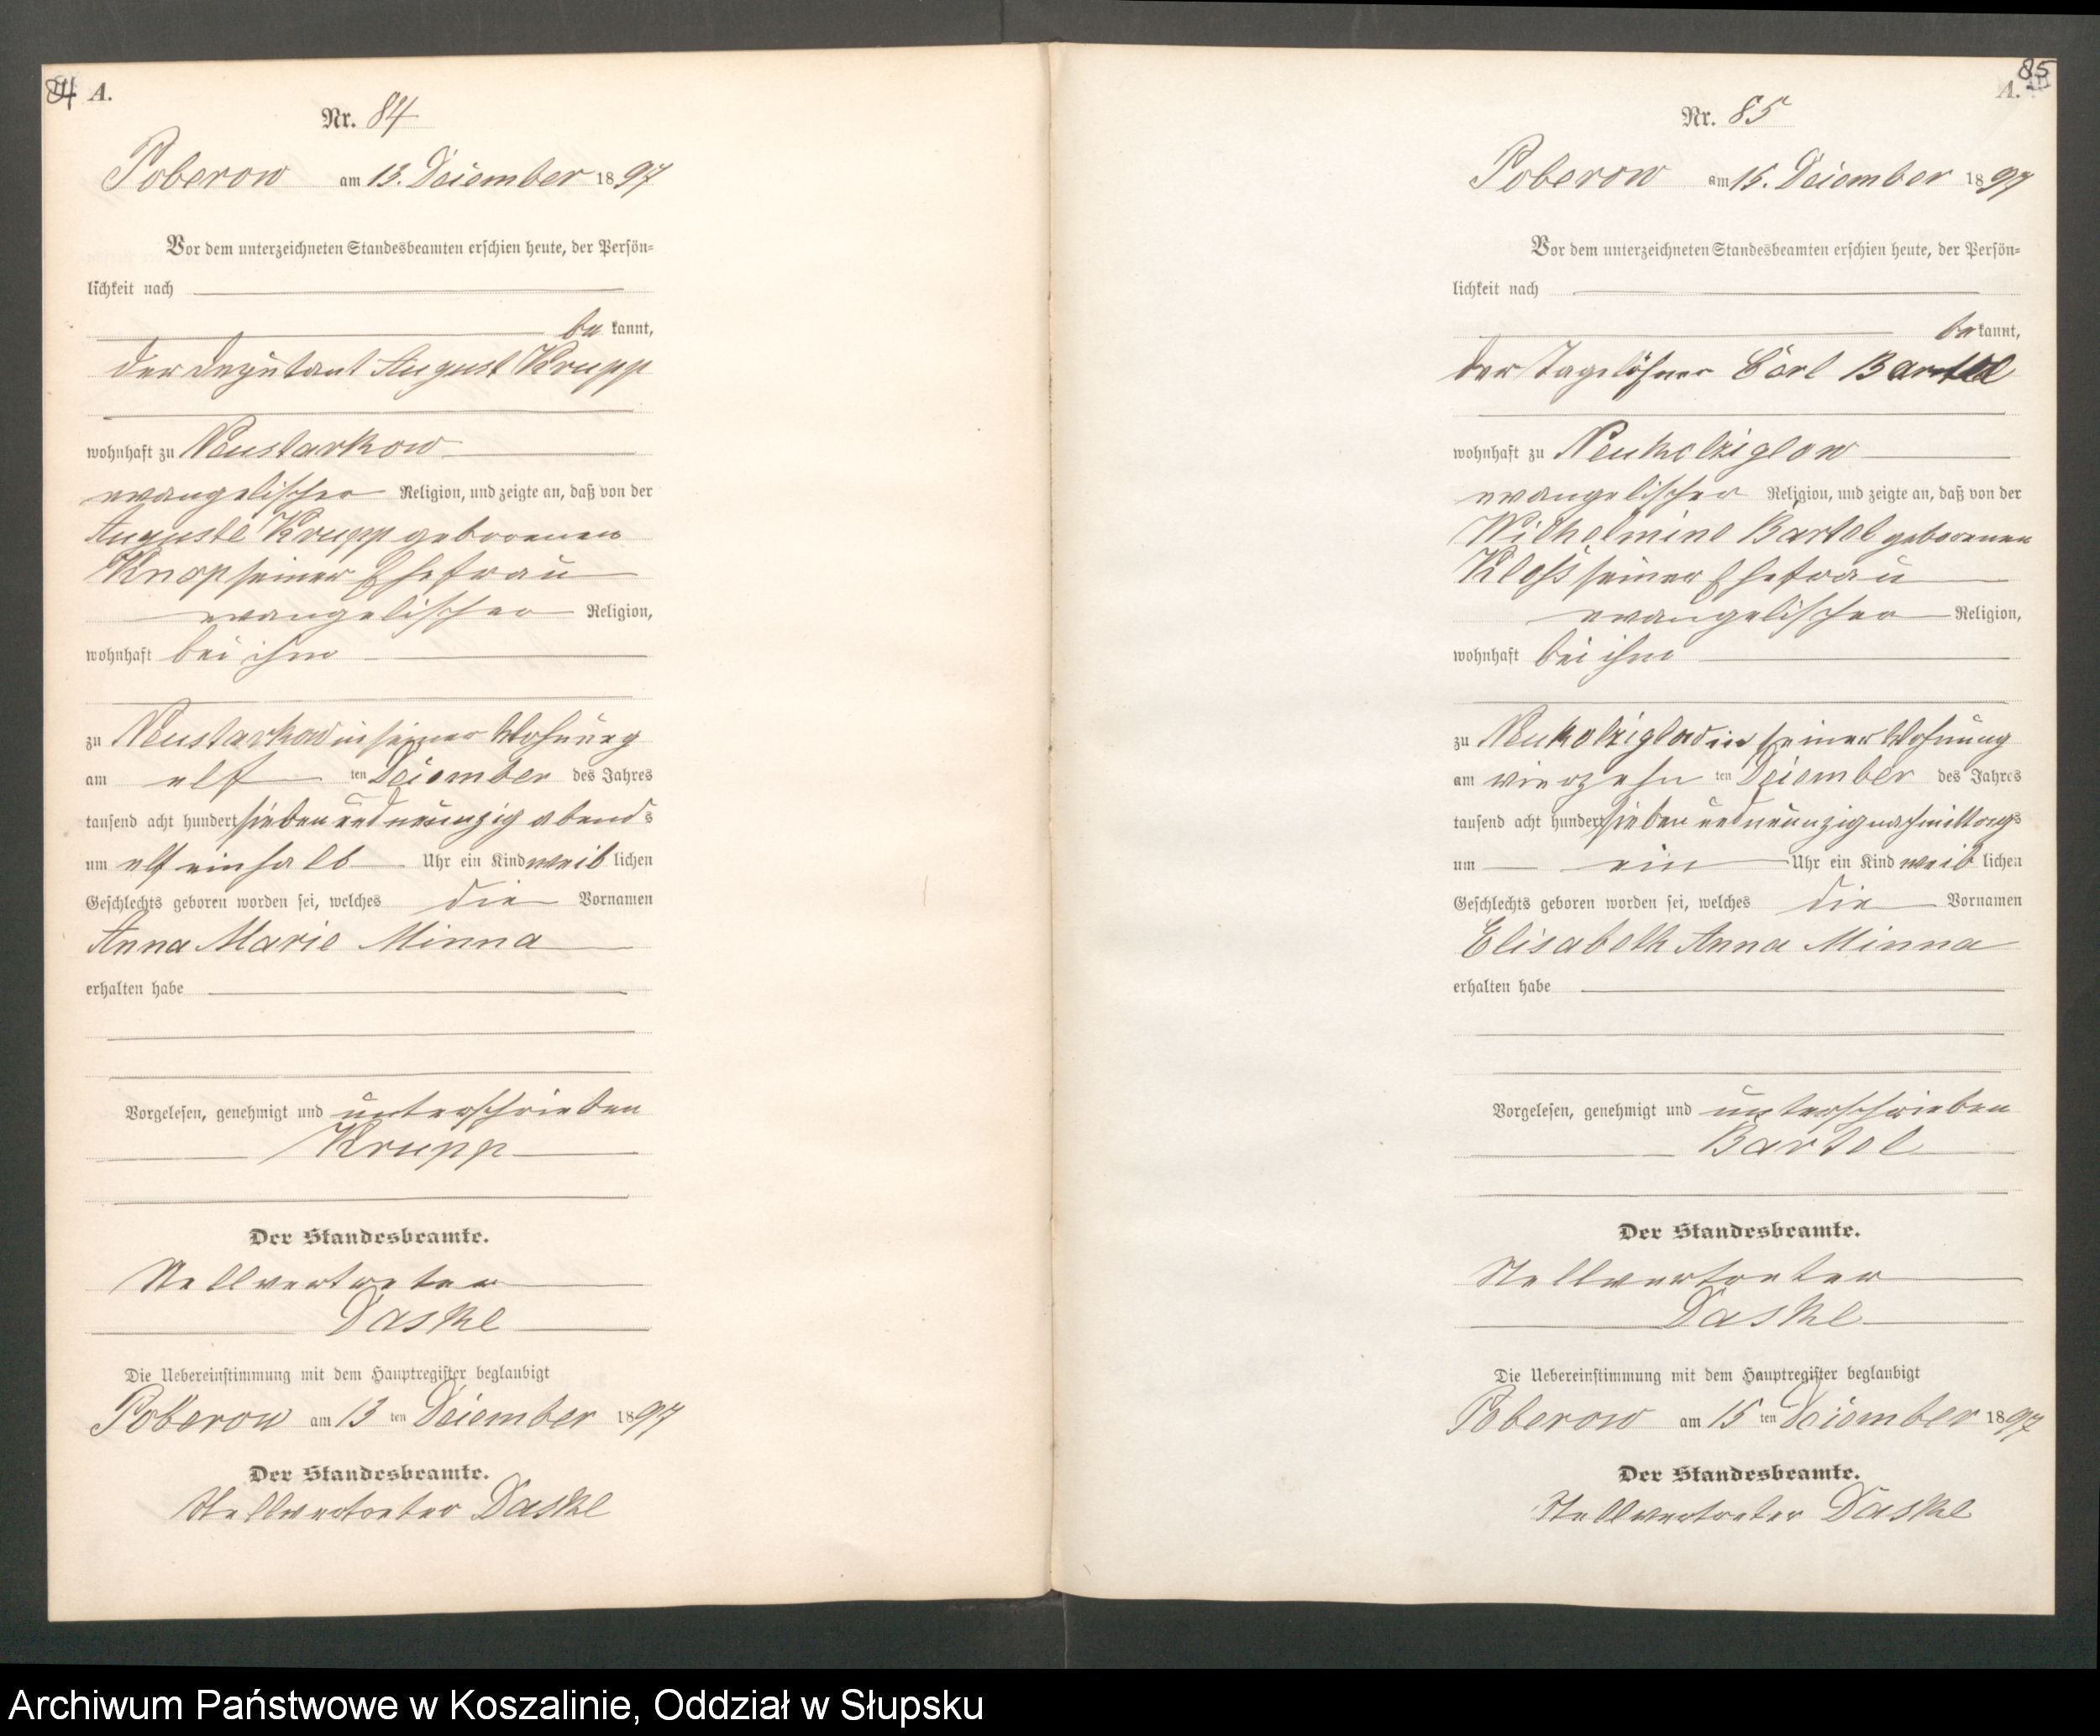 84 A.
Nr. 84
Poberow am 13. December 1897
Vor dem unterzeichneten Standesbeamten erschien heute, der Persön-
lichkeit nach
be kannt,
der Deputant August Krupp
wohnhaft zu Neustarkow
evangelischer Religion, und zeigte an, daß von der
Auguste Krupp geborenen
Knop seiner Ehefrau
evangelischer Religion,
wohnhaft bei ihm
zu Neustarkow in seiner Wohnung
am elf ten December des Jahres
tausend acht hundert sieben und neunzig abends
um elf einhalb Uhr ein Kind weib lichen
Geschlechts geboren worden sei, welches die Vornamen
Anna Marie Minna
erhalten habe
Vorgelesen, genehmigt und unterschrieben
Krupp
Der Standesbeamte.
Stellvertreter
Daske
Die Uebereinstimmung mit dem Hauptregister beglaubigt
Poberow am 13 ten December 1897
Der Standesbeamte.
Stellvertreter Daske
85
A.
Nr. 85
Poberow am 15. December 1897
Vor dem unterzeichneten Standesbeamten erschien heute, der Persön-
lichkeit nach
be kannt,
der Tagelöhner Carl Bartel
wohnhaft zu Neukolziglow
evangelischer Religion, und zeigte an, daß von der
Wilhelmine Bartel geborenen
Kloß seiner Ehefrau
evangelischer Religion,
wohnhaft bei ihm
zu Neukolziglow in seiner Wohnung
am vierzehn ten December des Jahres
tausend acht hundert sieben und neunzig nachmittags
um ein Uhr ein Kind weib lichen
Geschlechts geboren worden sei, welches die Vornamen
Elisabeth Anna Minna
erhalten habe
Vorgelesen, genehmigt und unterschrieben
Bartel
Der Standesbeamte.
Stellvertreter
Daske
Die Uebereinstimmung mit dem Hauptregister beglaubigt
Poberow am 15 ten December 1897
Der Standesbeamte.
Stellvertreter Daske
Archiwum Państwowe w Koszalinie, Oddział w Słupsku